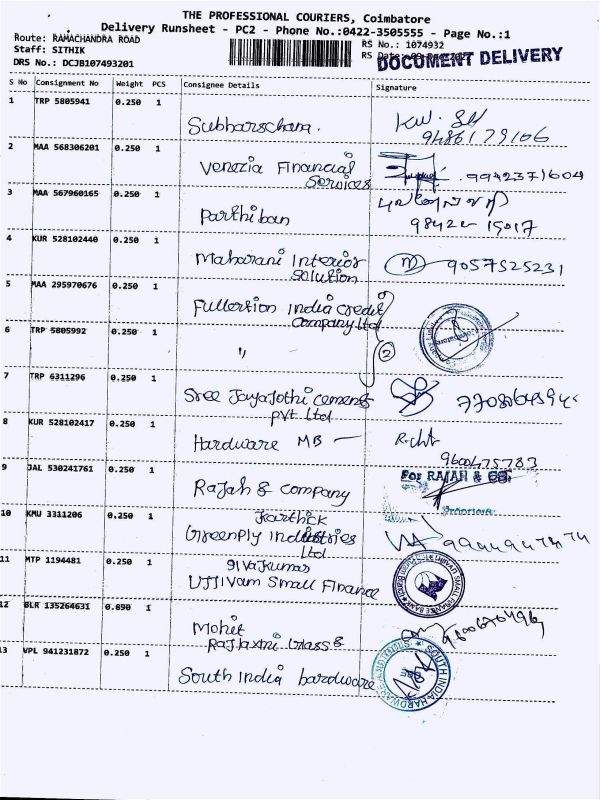 THE PROFESSIONAL COURIERS, Coimbatore
Delivery Runsheet - PC2 - Phone No.:0422-3505555 - Page No.:1
Route: RAMACHANDRA ROAD
Staff: SITHIK
DRS No.: DCJB107493201
RS No.: 1074932
RS Date:
DOCUMENT DELIVERY
S No Consignment No Weight PCS Consignee Details Signature
1 TRP 5805941 0.250 1
Subharschana.
9486179106
2 MAA 568306201 0.250 1
Venezia Financial
Services
9942371604
3 MAA 567960165 0.250 1
Parthiban
98422 15017
4 KUR 528102440 0.250 1
Maharani Interior
Solution
9057525231
5 MAA 295970676 0.250 1
Fullertion India Credit
Company Ltd
6 TRP 5805992 0.250 1
"
2
7 TRP 6311296 0.250 1
Sree Jayajothi cements
pvt Ltd
8 KUR 528102417 0.250 1
Hardware MB —
9600475783
9 JAL 530241761 0.250 1
Rajah & Company
For RAJAH & CO.
Proprietor
10 KMU 3311206 0.250 1
Karthick
Greenply Industries
Ltd
11 MTP 1194481 0.250 1
Sivakumar
Ujjivam Small Finance
12 BLR 135264631 0.890 1
Mohit
Rajlaxmi Glass &
13 VPL 941231872 0.250 1
South India hardware
SOUTH INDIA HARDWARE AND TOOLS